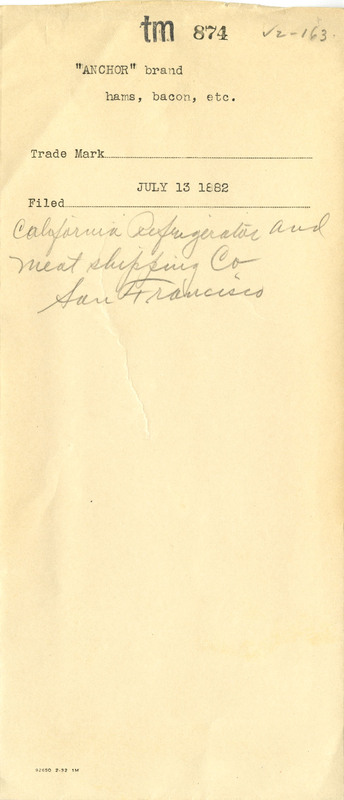 tm 874 V2-163
"ANCHOR" brand
hams, bacon, etc.
Trade Mark
JULY 13 1882
Filed
California Refrigerator and
Meat Shipping Co
San Francisco
62950 2-32 1M